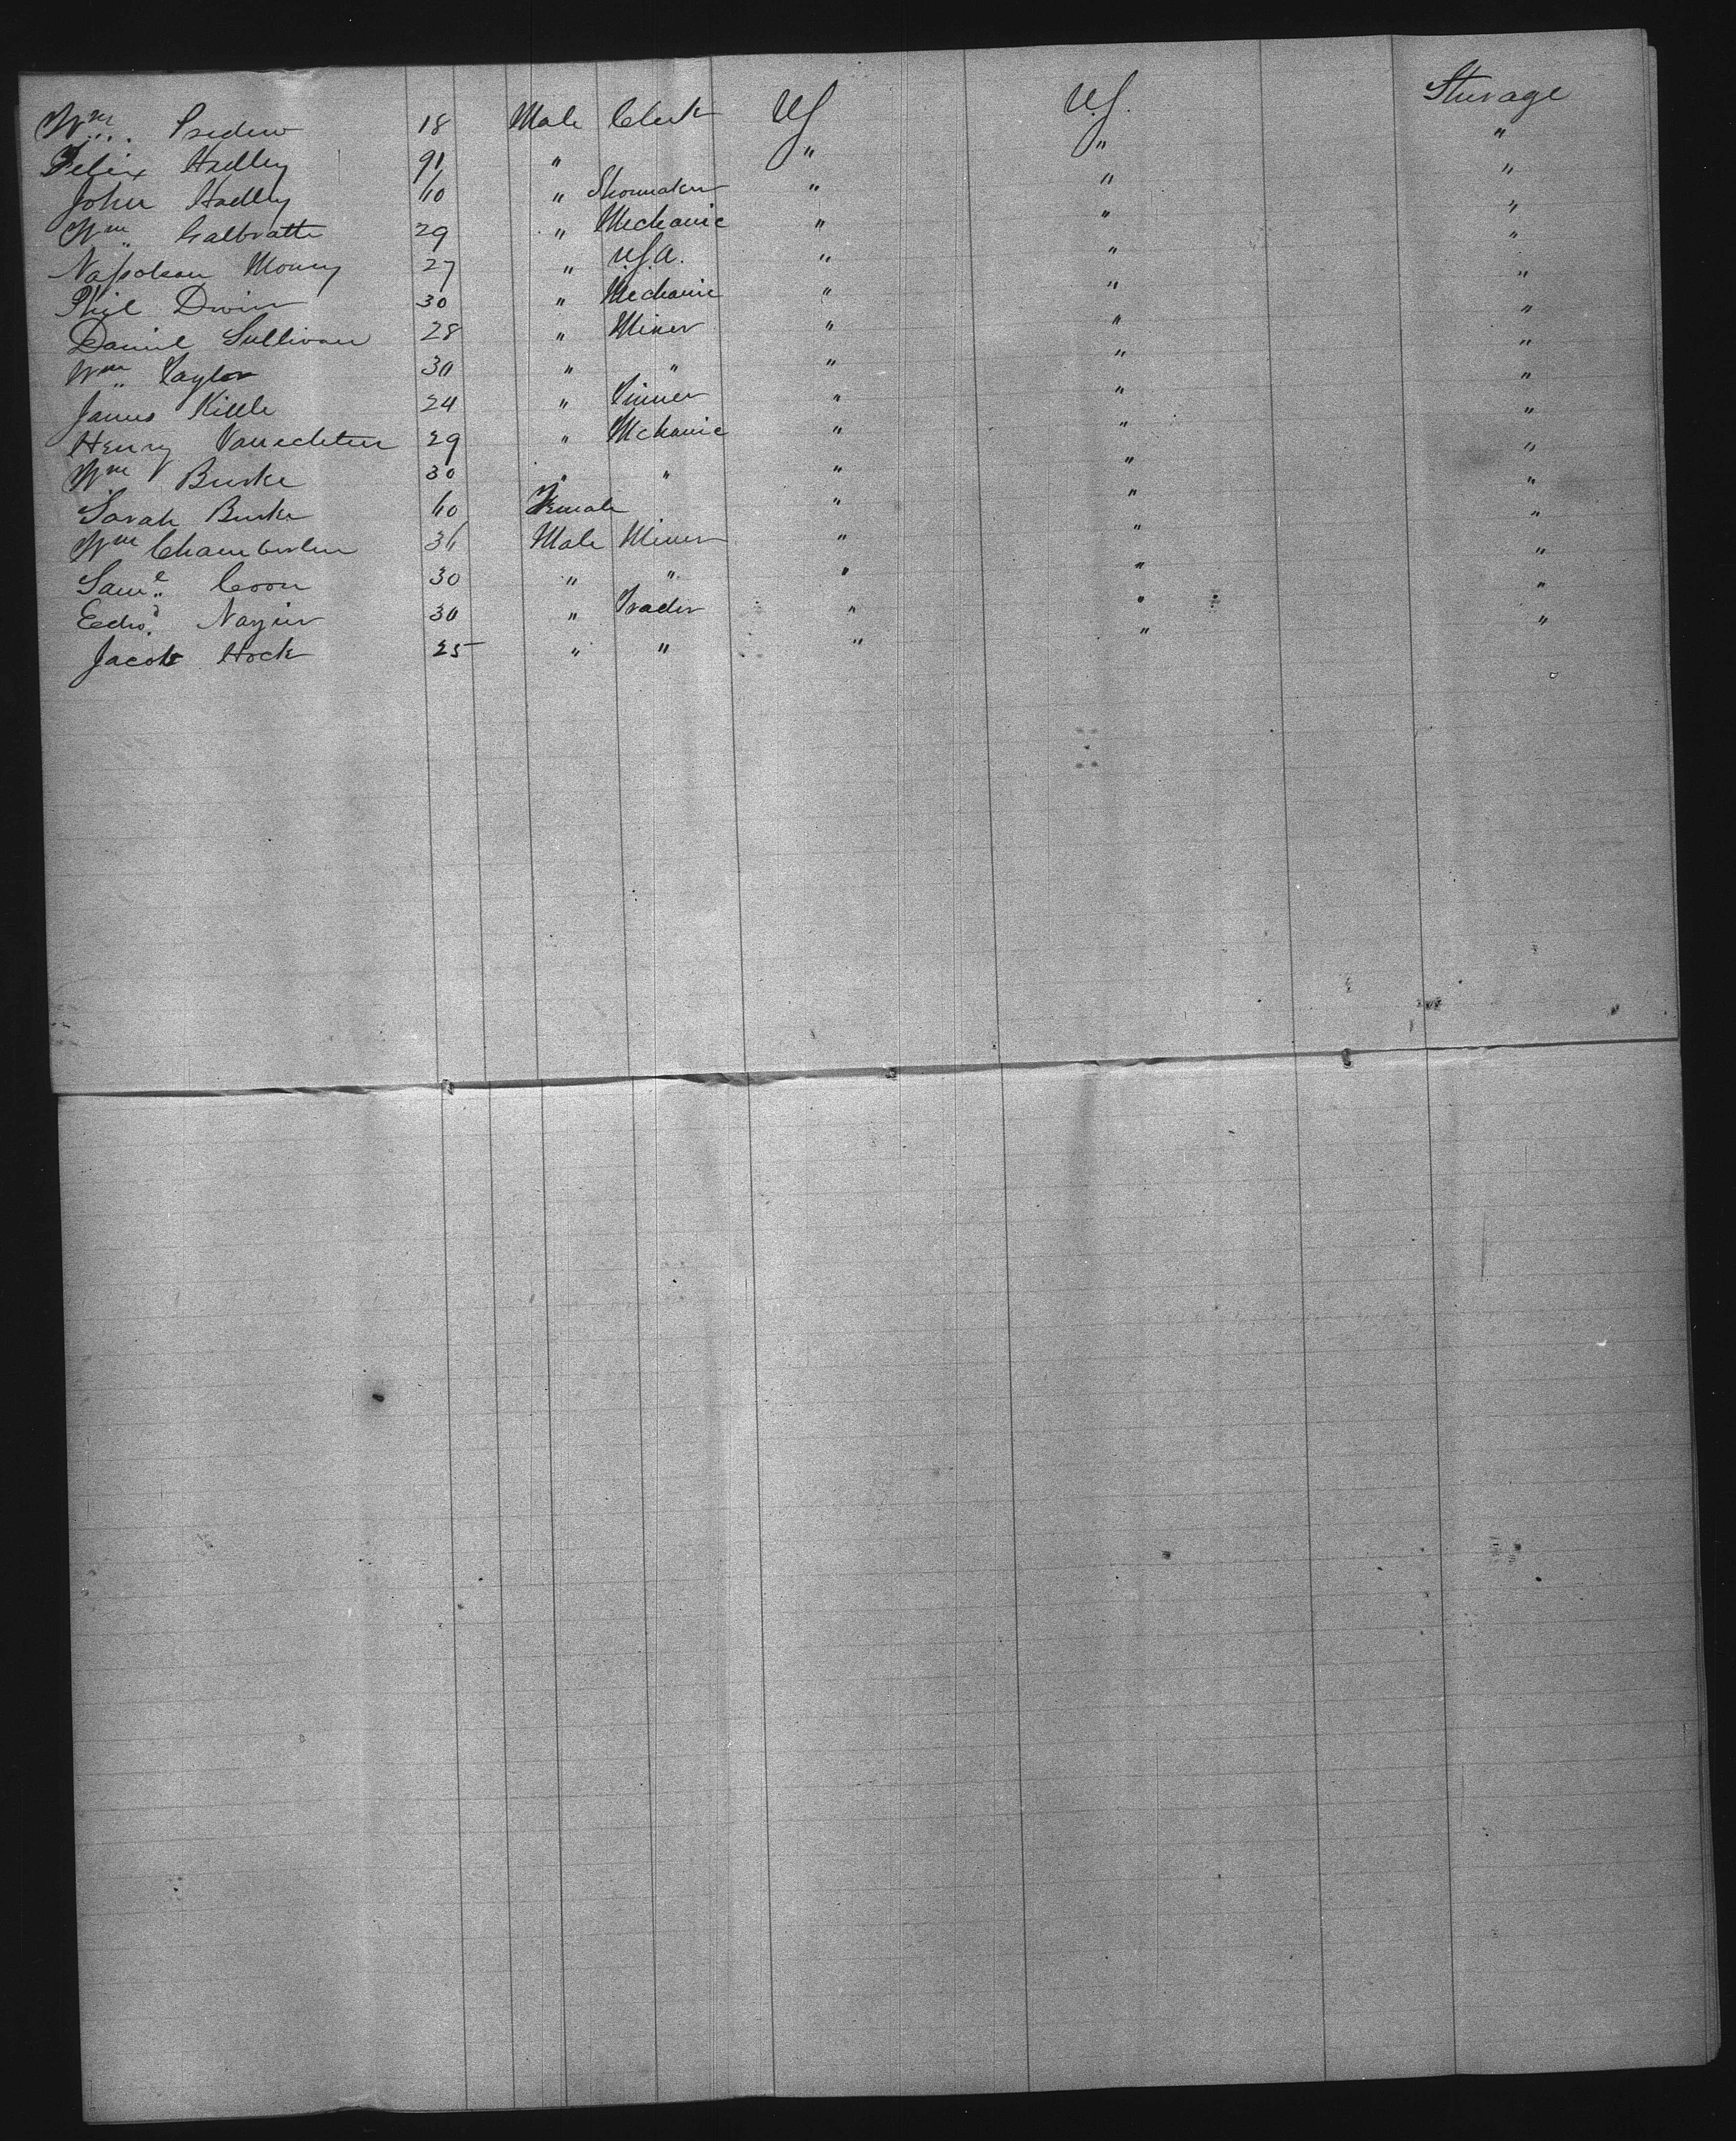 Wm Predew 18 Male Clerk US U.S. Sturage
Felix Hadley 91 " " " "
John Hadley 60 " Shoumaker " " "
Wm Galbratte 29 " Mechanic " " "
Napoleon Money 27 " U.S.A. " " "
Phil Dwin 30 " Mechanic " " "
Daniel Sullivan 28 " Miner " " "
Wm Taylor 30 " " " " "
James Kittle 24 " Tinner " " "
Henry Vanechten 29 " Mchanic " " "
Wm Burke 30 " " " " "
Sarah Burke 60 Female " " "
Wm Chamberlin 36 Male Miner " " "
Saml Coon 30 " " " " "
Edwd Nazier 30 " Trader " " "
Jacob Hock 25 " " " " "